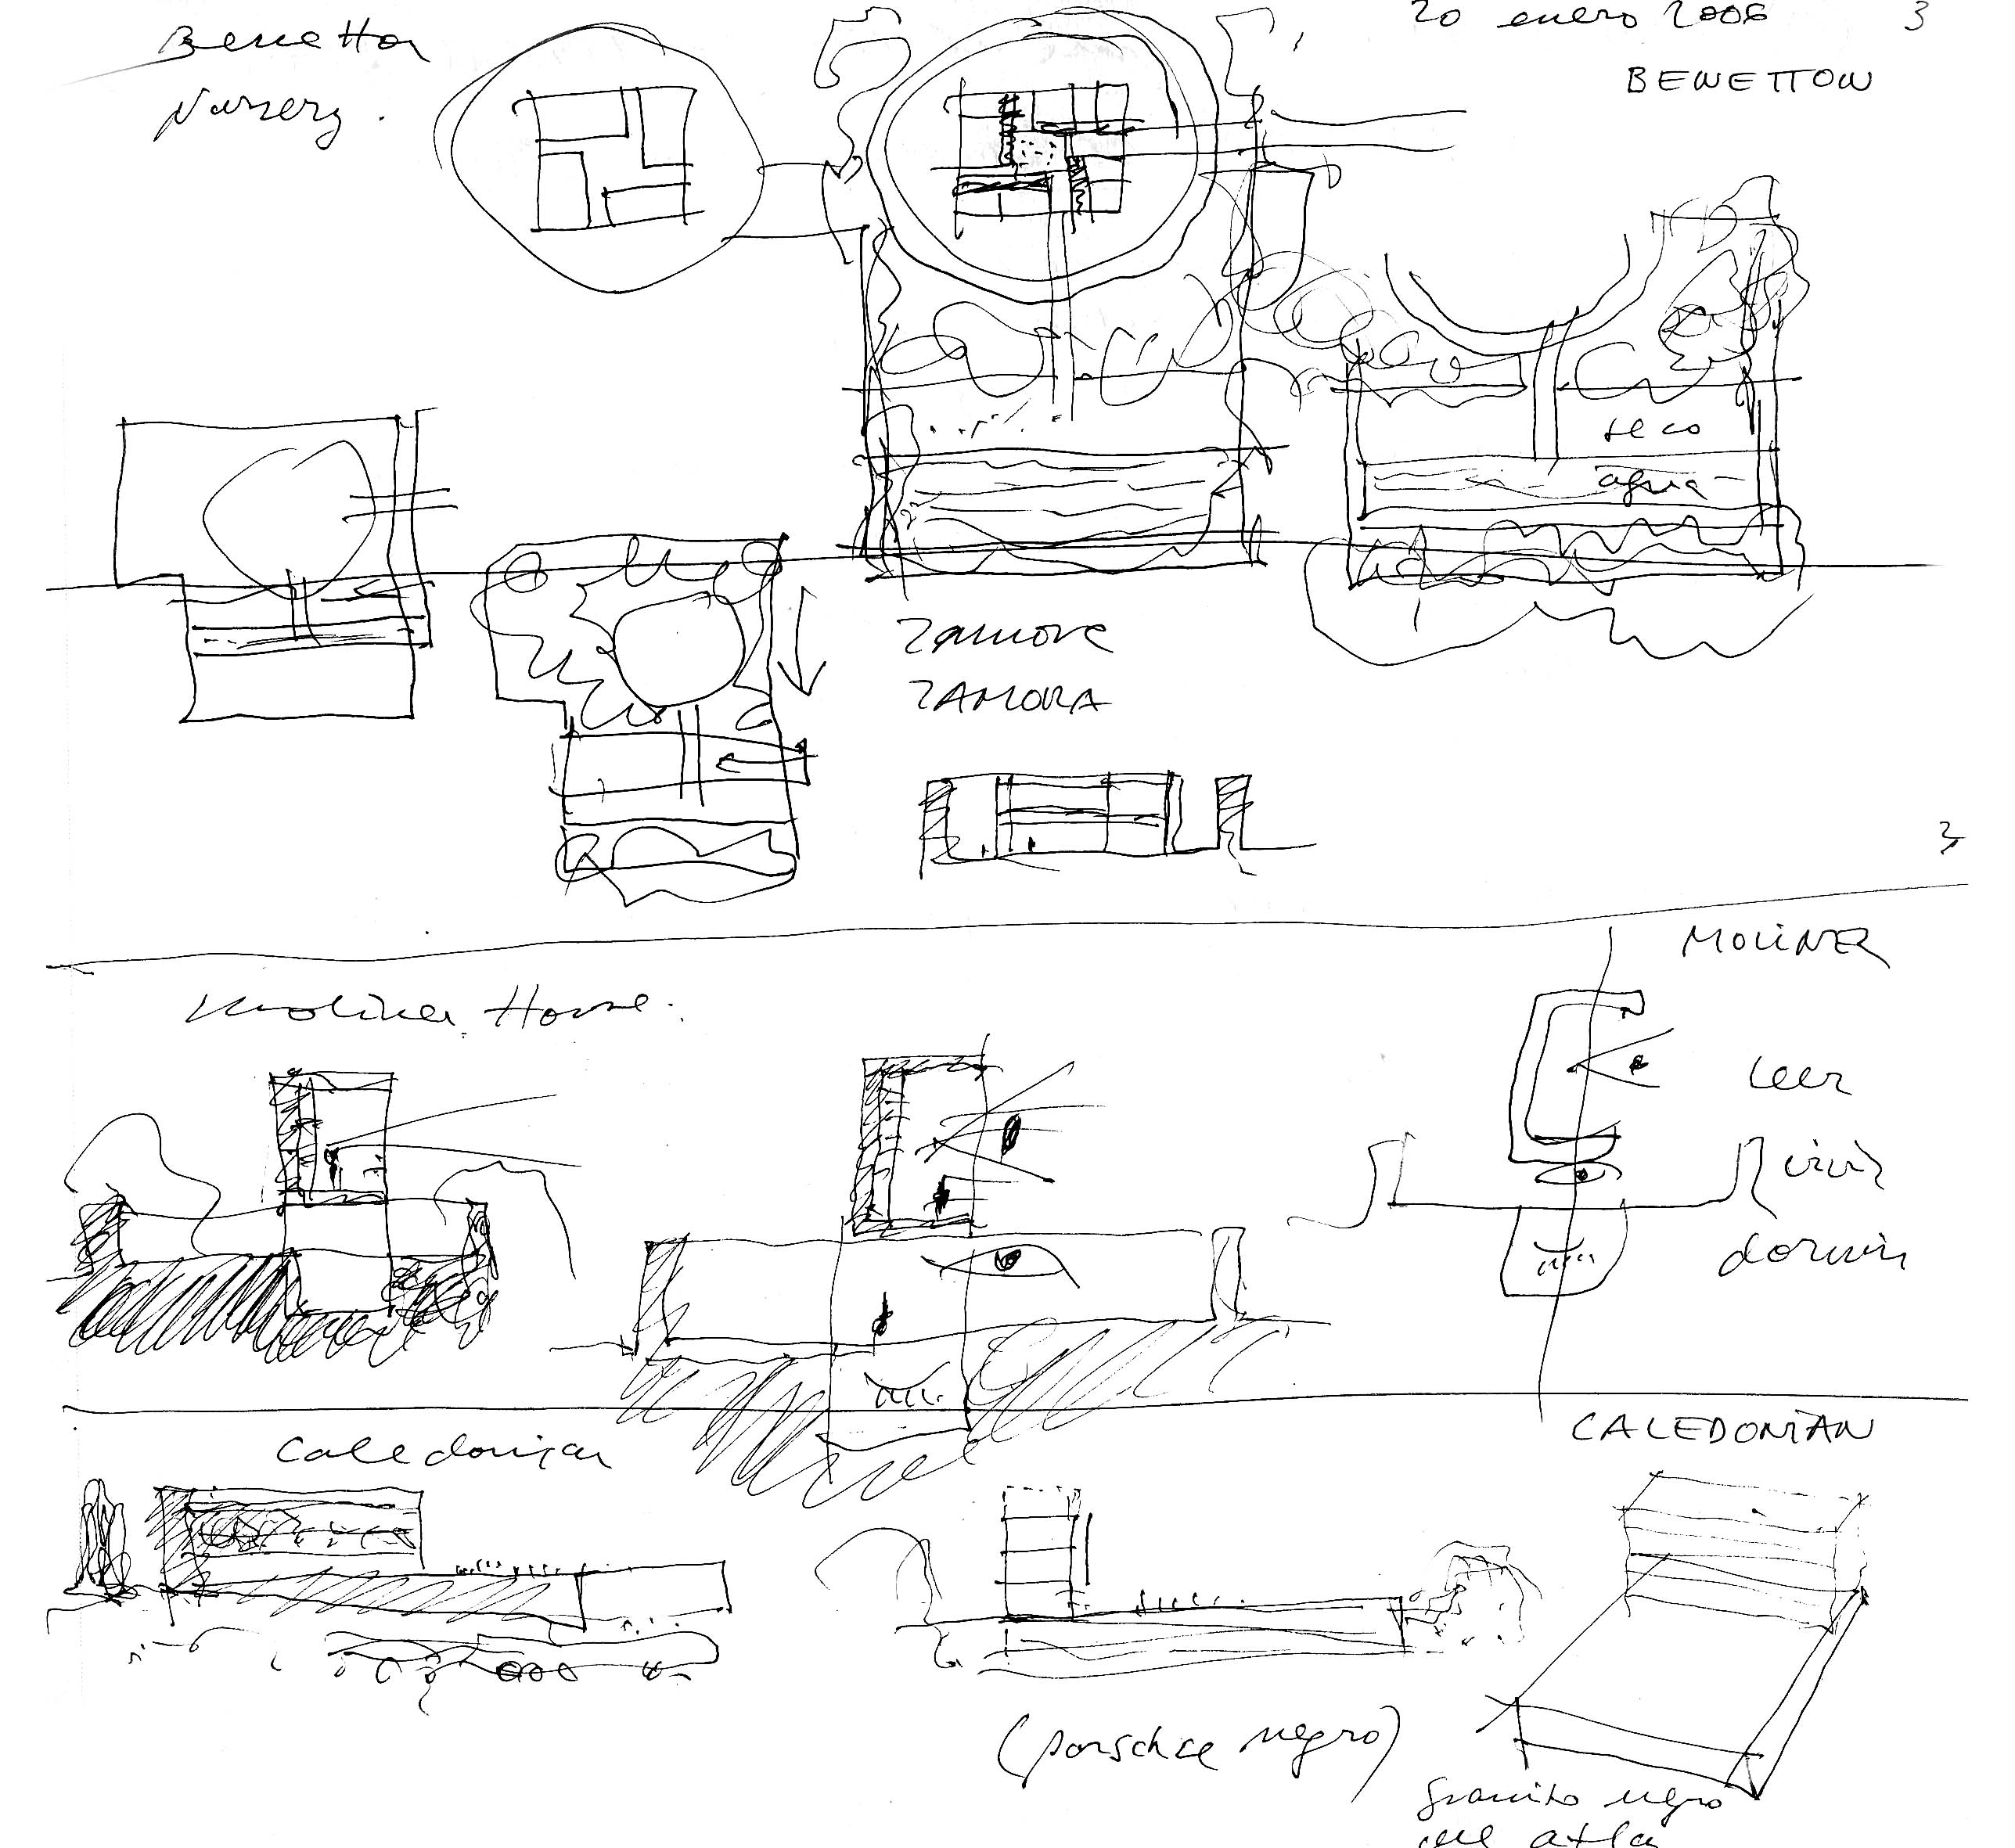 Benetton
Nursery.
20 enero 2006
3
BENETTON
seco
agua
Zamora
ZAMORA
3
MOLINER
Moliner House.
leer
vivir
dormir
Caledonian
CALEDONIAN
(porsche negro)
granito negro